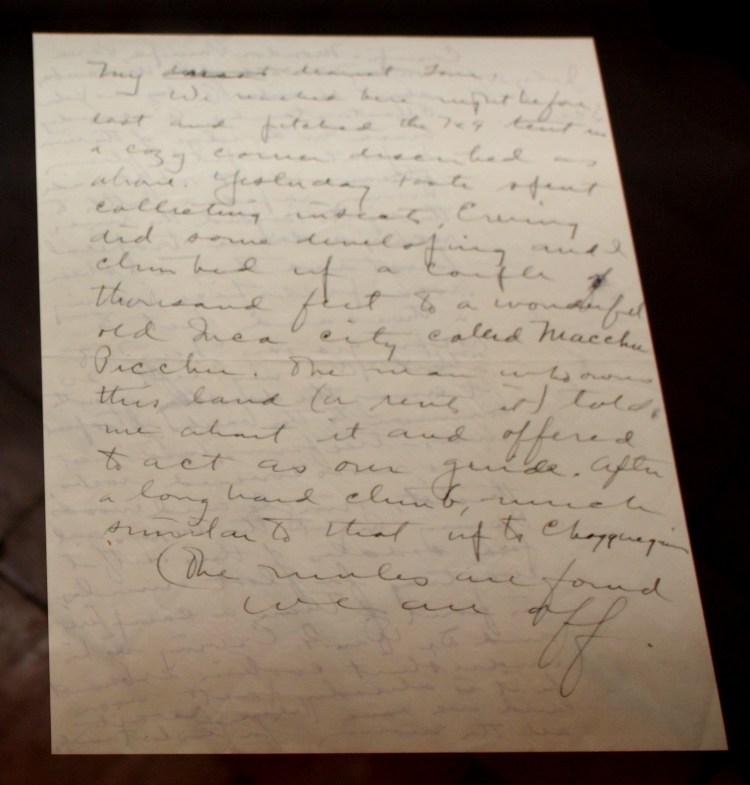 My dearest dearest love,
We reached here night before
last and pitched the 7x9 tent in
a cozy corner described as
above. Yesterday Foote spent
collecting insects. Erving
did some developing and I
climbed up a couple of
thousand feet to a wonderful
old Inca city called Macchu
Picchu. The man who owns
this land (or rents it) told
me about it and offered
to act as our guide. After
a long hard climb, much
similar to that up to
(The mules are found
we are off.